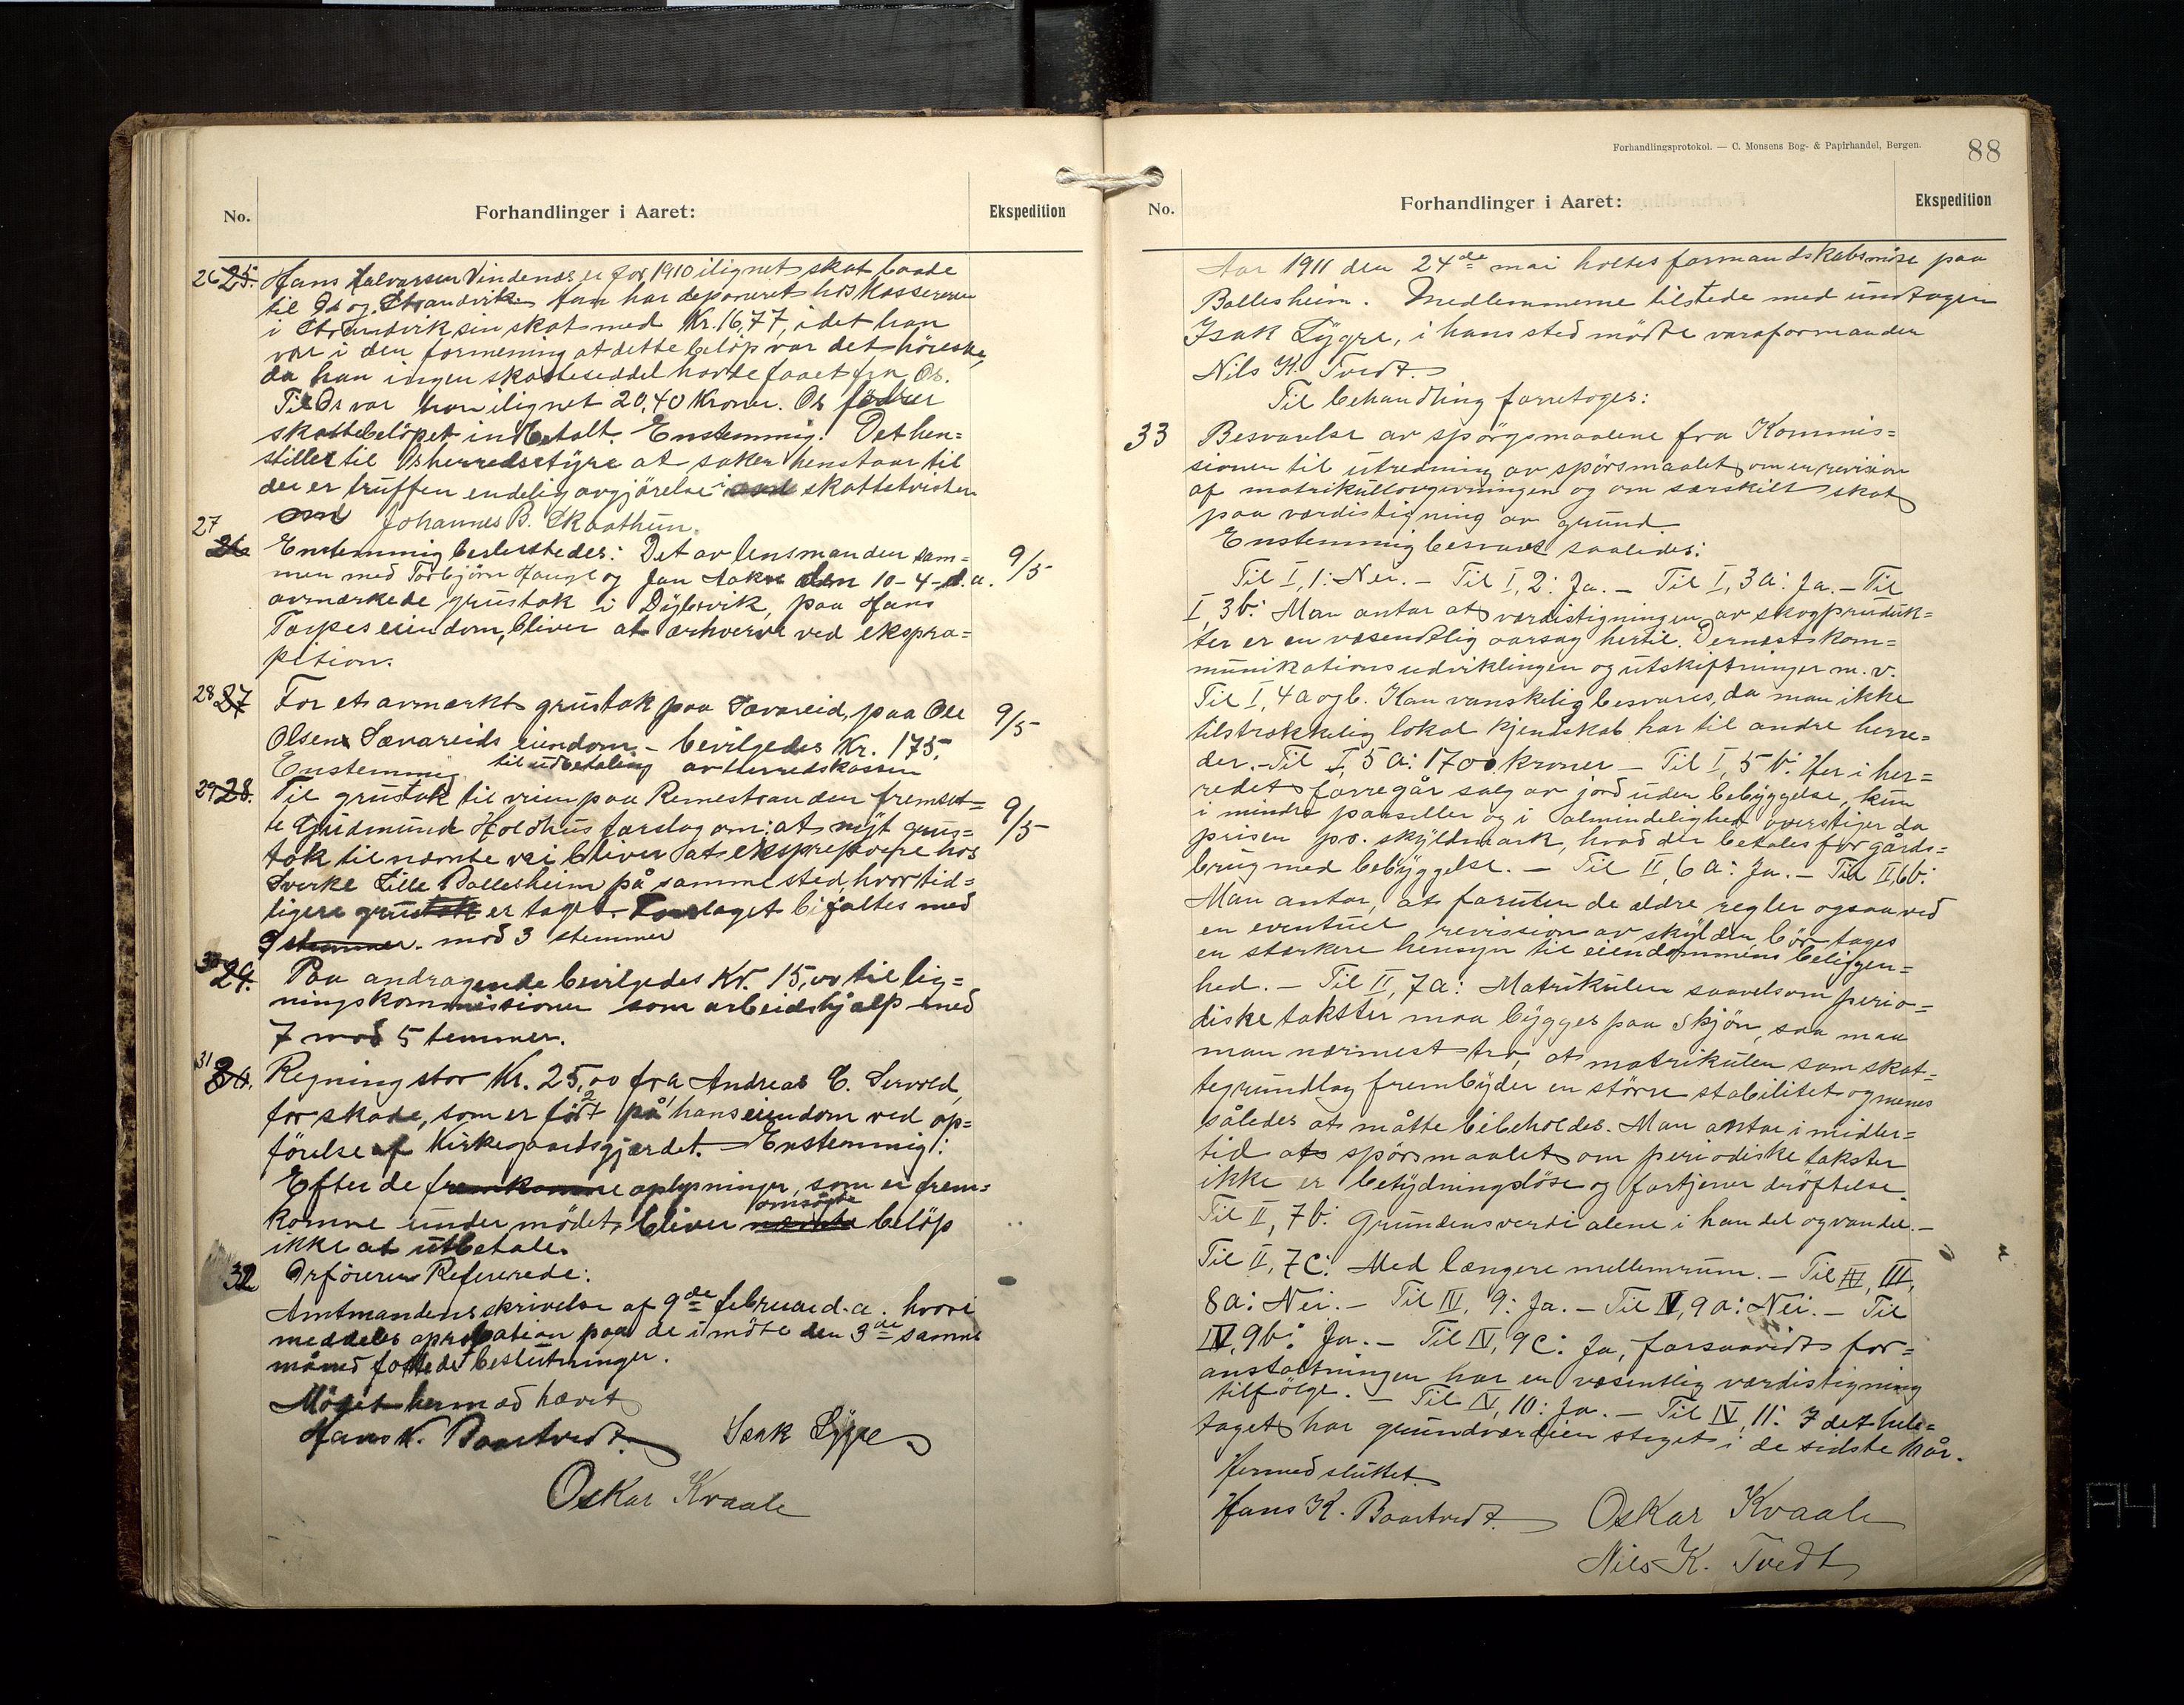 No. Forhandlinger i Aaret: Ekspedition
26 25. Hans Halvorsen Vindenes er for 1910 ilignet skat baade
til Os og Strandvik. Han har deponeret hos Kassereren
i Strandvik sin skat med Kr. 16,77, idet han
var i den formening at dette beløp var det høieste,
da han ingen skatteseddel havde faaet fra Os.
Til Os var han ilignet 20,40 Kroner. Os fødrer
skattebeløpet indbetalt. Enstemmig: Det hen=
stilles til Os herredsstyre at saken henstaar til
der er truffen endelig avgjørelse i skattetvisten
Johannes B. Skaathun.
27 26. Enstemmig besluttedes: Det av lensmanden sam= 9/5
men med Torbjørn Hauge og Jan Aake den 10-4-d.a.
avmærkede grustak i Dybsvik, paa Hans
Tarpes eiendom, bliver at erhverve ved ekspro=
piation.
28 27 For et avmærkt grustak paa Sævareid, paa Ole 9/5
Olsen Sævareids eiendom - bevilgedes Kr. 175,
Enstemmig til utbetaling av Herredskassen
29 28. Til grustak til veien paa Remestranden fremsat= 9/5
te Gudmund Holdhus forslag om: at nyt grus=
tak til nævnte vei bliver at ekspropriere hos
Sverke Lille Ballesheim på samme sted, hvor tid=
ligere grustak er taget. Forslaget bifaltes med
9 stemmer. mod 3 stemmer
30 29. Paa andragende bevilgedes Kr. 15,00 til lig=
ningskommissionen som arbeidshjælp med
7 mod 5 temmer.
31 30. Regning stor Kr. 25,00 fra Andreas C. Servold,
for skade, som er ført på hans eiendom ved op=
førelse af Kirkegaardsgjærdet. Enstemmig:
Efter de fremkomne oplysninger, som er frem=
komne under mødet, bliver nævnte omsøgte beløp
ikke at utbetale.
32 Orføreren Refererede:
Amtmandens skrivelse af 9de februar d.a. hvori
meddeles aprobation paa de i møte den 3de samme
måned fattede beslutninger.
Møtet hermed hævet
Hans K. Baartvedt. Isak Lygre
Oskar Kvaale
Forhandlingsprotokol. — C. Monsens Bog- & Papirhandel, Bergen. 88
No. Forhandlinger i Aaret: Ekspedition
Aar 1911 den 24de mai holtes formandskabsmøte paa
Ballesheim. Medlemmerne tilstede med undtagen
Isak Lygre, i hans sted mødte varaformanden
Nils K. Tvedt.
Til behandling foretoges:
33 Besvarelse av spørgsmaalene fra Kommis=
sionen til utredning av spørsmaalet om en revision
af matrikullovgivningen og om særskilt skat
paa værdistigning av grund
Enstemmig besvaret saaledes:
Til I, 1: Nei. - Til I, 2: Ja. - Til I, 3a: Ja. - Til
I, 3b: Man antar at værdistigningen av skogproduk=
ter er en væsendtlig aarsag hertil. Dernæst kom=
munikationsudviklingen og utskiftninger m. v.
Til I, 4a og b. Kan vanskelig besvares, da man ikke
tilstrækkelig lokal kjendskab har til andre herre=
der. - Til I, 5a: 1700 kroner - Til I, 5b: Her i her=
redet foregår salg av jord uden bebyggelse, kun
i mindre parseller og i almindelighed overstiger da
prisen pr. skyldmark, hvad der betales for gårds=
brug med bebyggelse. - Til II, 6a: Ja. - Til II, 6b:
Man antar, at foruten de ældre regler ogsaa ved
en eventuel revission av skylden bør tages
en stærkere hensyn til eiendommens beliggen=
hed. - Til II, 7a: Matrikulen saavelsom perio=
diske takster maa bygges paa skjøn, saa maa
man nærmest tro, at matrikulen som skat=
tegrundlag frembyder en større stabilitet og menes
således at måtte bibeholdes. Man antar imidler=
tid at spørsmaalet om periodiske takster
ikke er betydningsløse og fortjener drøftelse.
Til II, 7b: Grundens verdi alene i handel og vandel. -
Til II, 7c: Med længere mellemrum. - Til III,
8a: Nei. - Til IV, 9: Ja. - Til IV, 9a: Nei. - Til
IV, 9b: Ja. - Til IV, 9c: Ja, forsaavidt for=
anstaltningen har en væsentlig værdistigning
tilfølge. - Til IV, 10: Ja. - Til IV, 11: I det hele=
taget har grundværdien steget i de sidste 10 år.
Hermed sluttet
Hans K. Baartvedt. Oskar Kvaale
Nils K. Tvedt